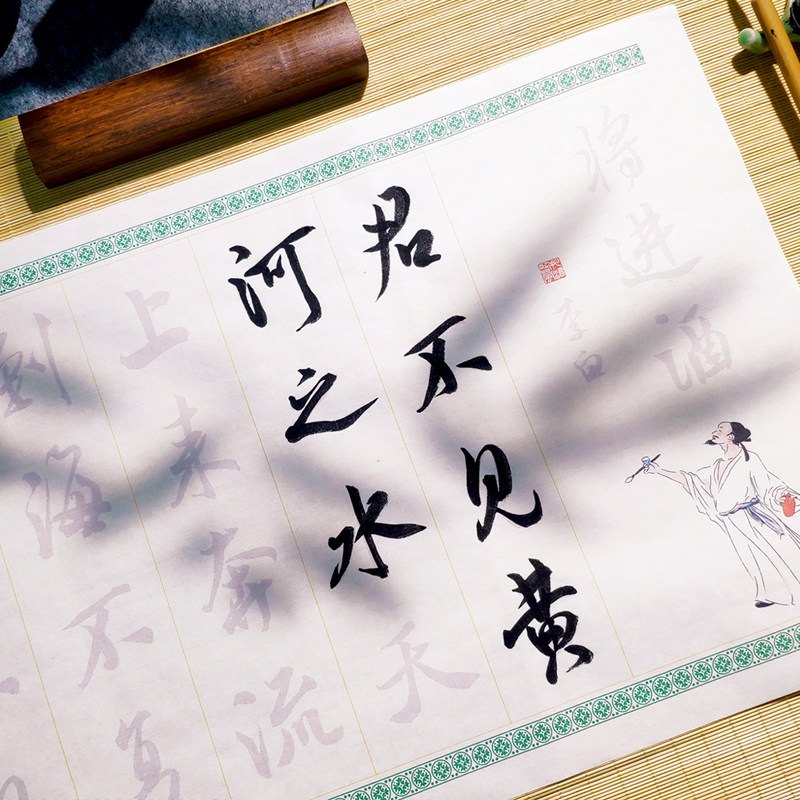 将进酒
李白
君不见黄
河之水天
上来奔流
到海不复